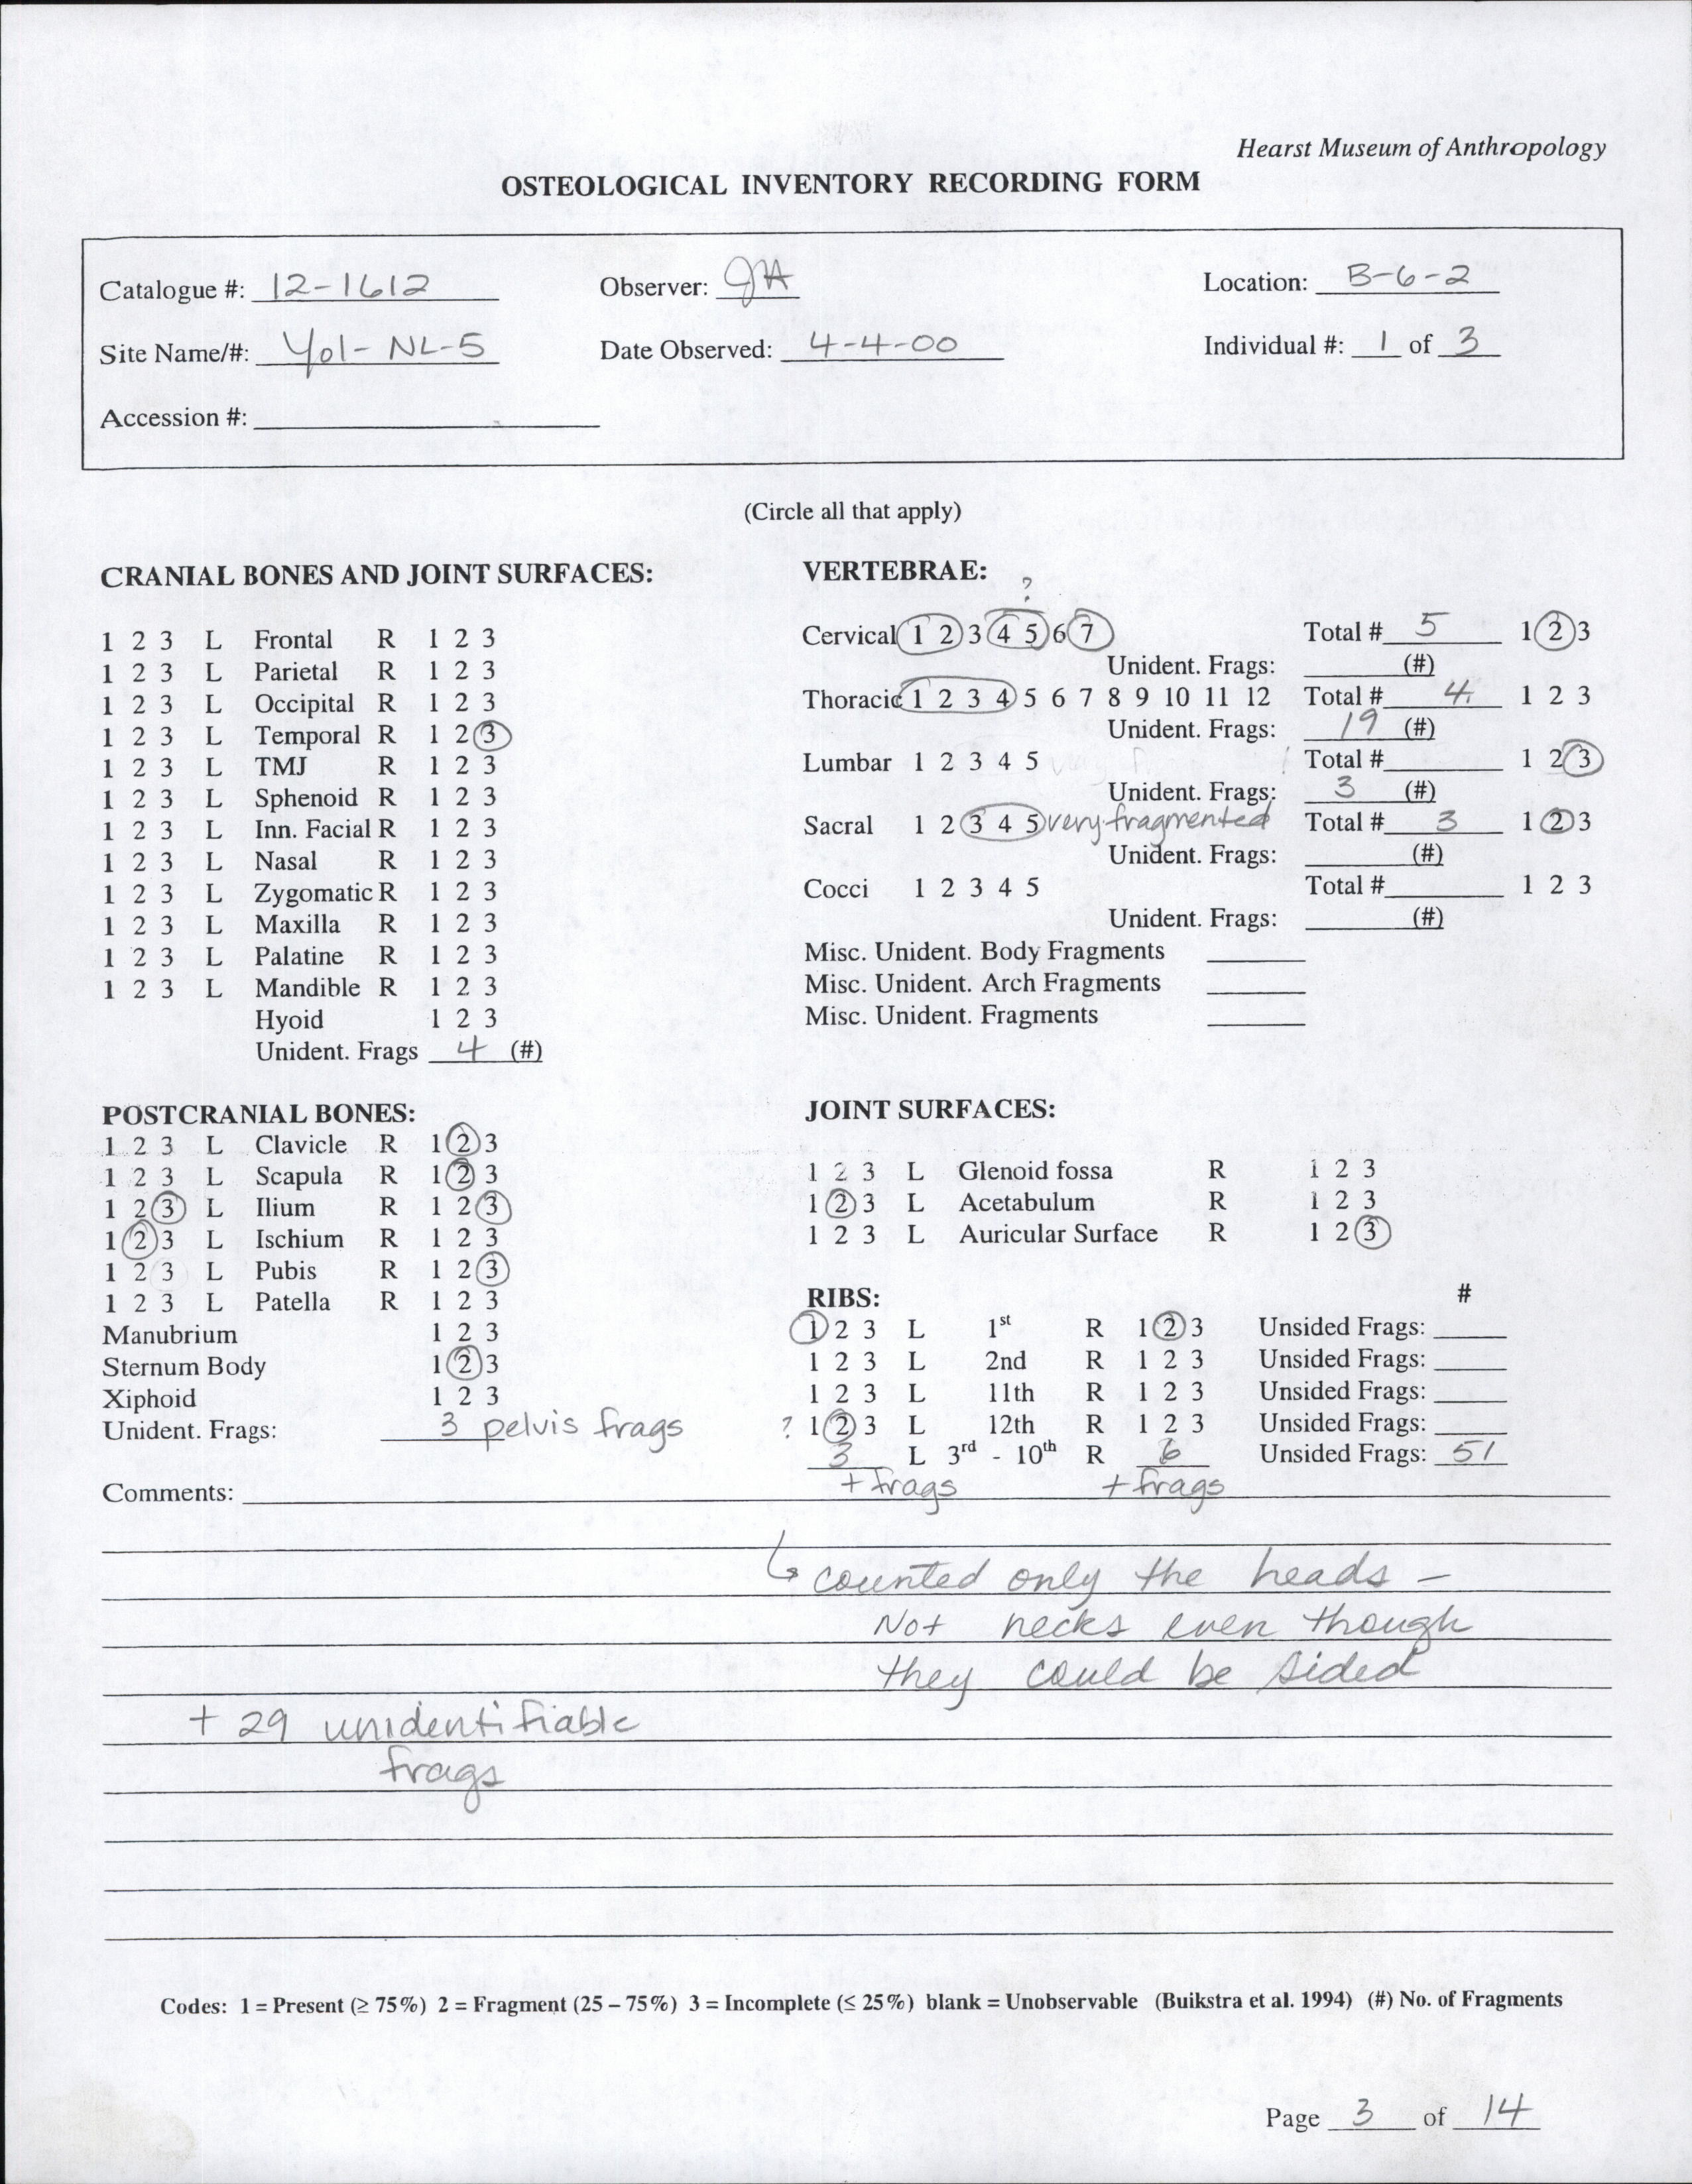 Hearst Museum of Anthropology
OSTEOLOGICAL INVENTORY RECORDING FORM
Catalogue #: 12-1612 Observer: JA Location: B-6-2
Site Name/#: Yol-NL-5 Date Observed: 4-4-00 Individual #: 1 of 3
Accession #:
(Circle all that apply)
CRANIAL BONES AND JOINT SURFACES:
1 2 3 L Frontal R 1 2 3
1 2 3 L Parietal R 1 2 3
1 2 3 L Occipital R 1 2 3
1 2 3 L Temporal R 1 2 3
1 2 3 L TMJ R 1 2 3
1 2 3 L Sphenoid R 1 2 3
1 2 3 L Inn. Facial R 1 2 3
1 2 3 L Nasal R 1 2 3
1 2 3 L Zygomatic R 1 2 3
1 2 3 L Maxilla R 1 2 3
1 2 3 L Palatine R 1 2 3
1 2 3 L Mandible R 1 2 3
Hyoid 1 2 3
Unident. Frags 4 (#)
VERTEBRAE:
?
Cervical 1 2 3 4 5 6 7 Total # 5 1 2 3
Unident. Frags: (#)
Thoracic 1 2 3 4 5 6 7 8 9 10 11 12 Total # 4 1 2 3
Unident. Frags: 19 (#)
Lumbar 1 2 3 4 5 Total # 1 2 3
Unident. Frags: 3 (#)
Sacral 1 2 3 4 5 very fragmented Total # 3 1 2 3
Unident. Frags: (#)
Cocci 1 2 3 4 5 Total # 1 2 3
Unident. Frags: (#)
Misc. Unident. Body Fragments
Misc. Unident. Arch Fragments
Misc. Unident. Fragments
POSTCRANIAL BONES:
1 2 3 L Clavicle R 1 2 3
1 2 3 L Scapula R 1 2 3
1 2 3 L Ilium R 1 2 3
1 2 3 L Ischium R 1 2 3
1 2 3 L Pubis R 1 2 3
1 2 3 L Patella R 1 2 3
Manubrium 1 2 3
Sternum Body 1 2 3
Xiphoid 1 2 3
Unident. Frags: 3 pelvis frags
JOINT SURFACES:
1 2 3 L Glenoid fossa R 1 2 3
1 2 3 L Acetabulum R 1 2 3
1 2 3 L Auricular Surface R 1 2 3
RIBS: #
1 2 3 L 1st R 1 2 3 Unsided Frags:
1 2 3 L 2nd R 1 2 3 Unsided Frags:
1 2 3 L 11th R 1 2 3 Unsided Frags:
? 1 2 3 L 12th R 1 2 3 Unsided Frags:
3 L 3rd - 10th R 6 Unsided Frags: 51
+ frags + frags
Comments:
↳ counted only the heads -
Not necks even though
they could be sided
+ 29 unidentifiable
frags
Codes: 1 = Present (≥ 75%) 2 = Fragment (25 – 75%) 3 = Incomplete (≤ 25%) blank = Unobservable (Buikstra et al. 1994) (#) No. of Fragments
Page 3 of 14